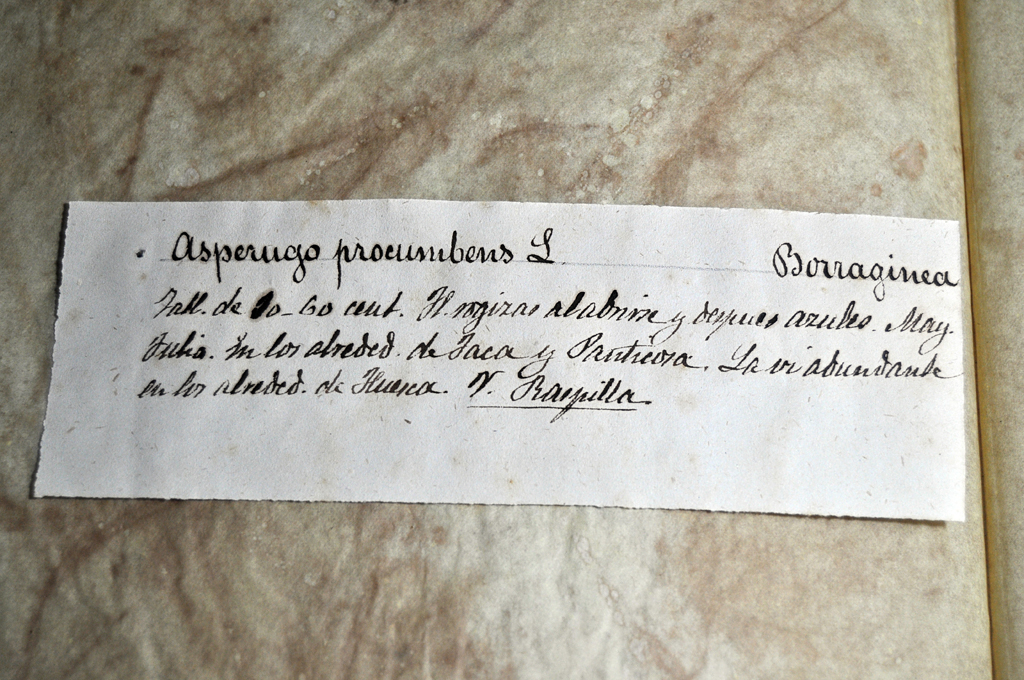 Asperugo procumbens L Borraginea
Tall. de 10-60 cent. Fl. rogizas al abrirse y despues azules. May.
Julio. En los alreded. de Jaca y Panticosa. La vi abundante
en los alreded. de Huesca. V. Raspilla.